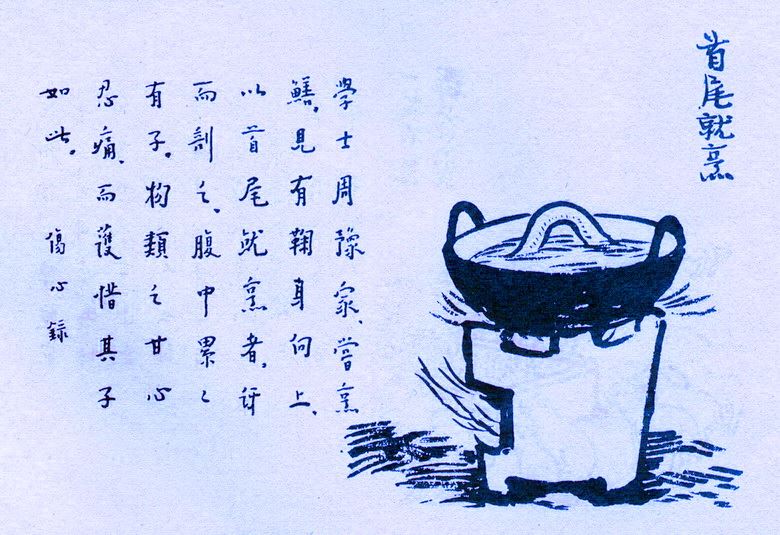 首尾就烹
學士周豫家、嘗烹
鱔。見有鞠身向上、
以首尾就烹者。訝
而剖之、腹中累々
有子。物類之甘心
忍痛、而護惜其子
如此。 傷心錄